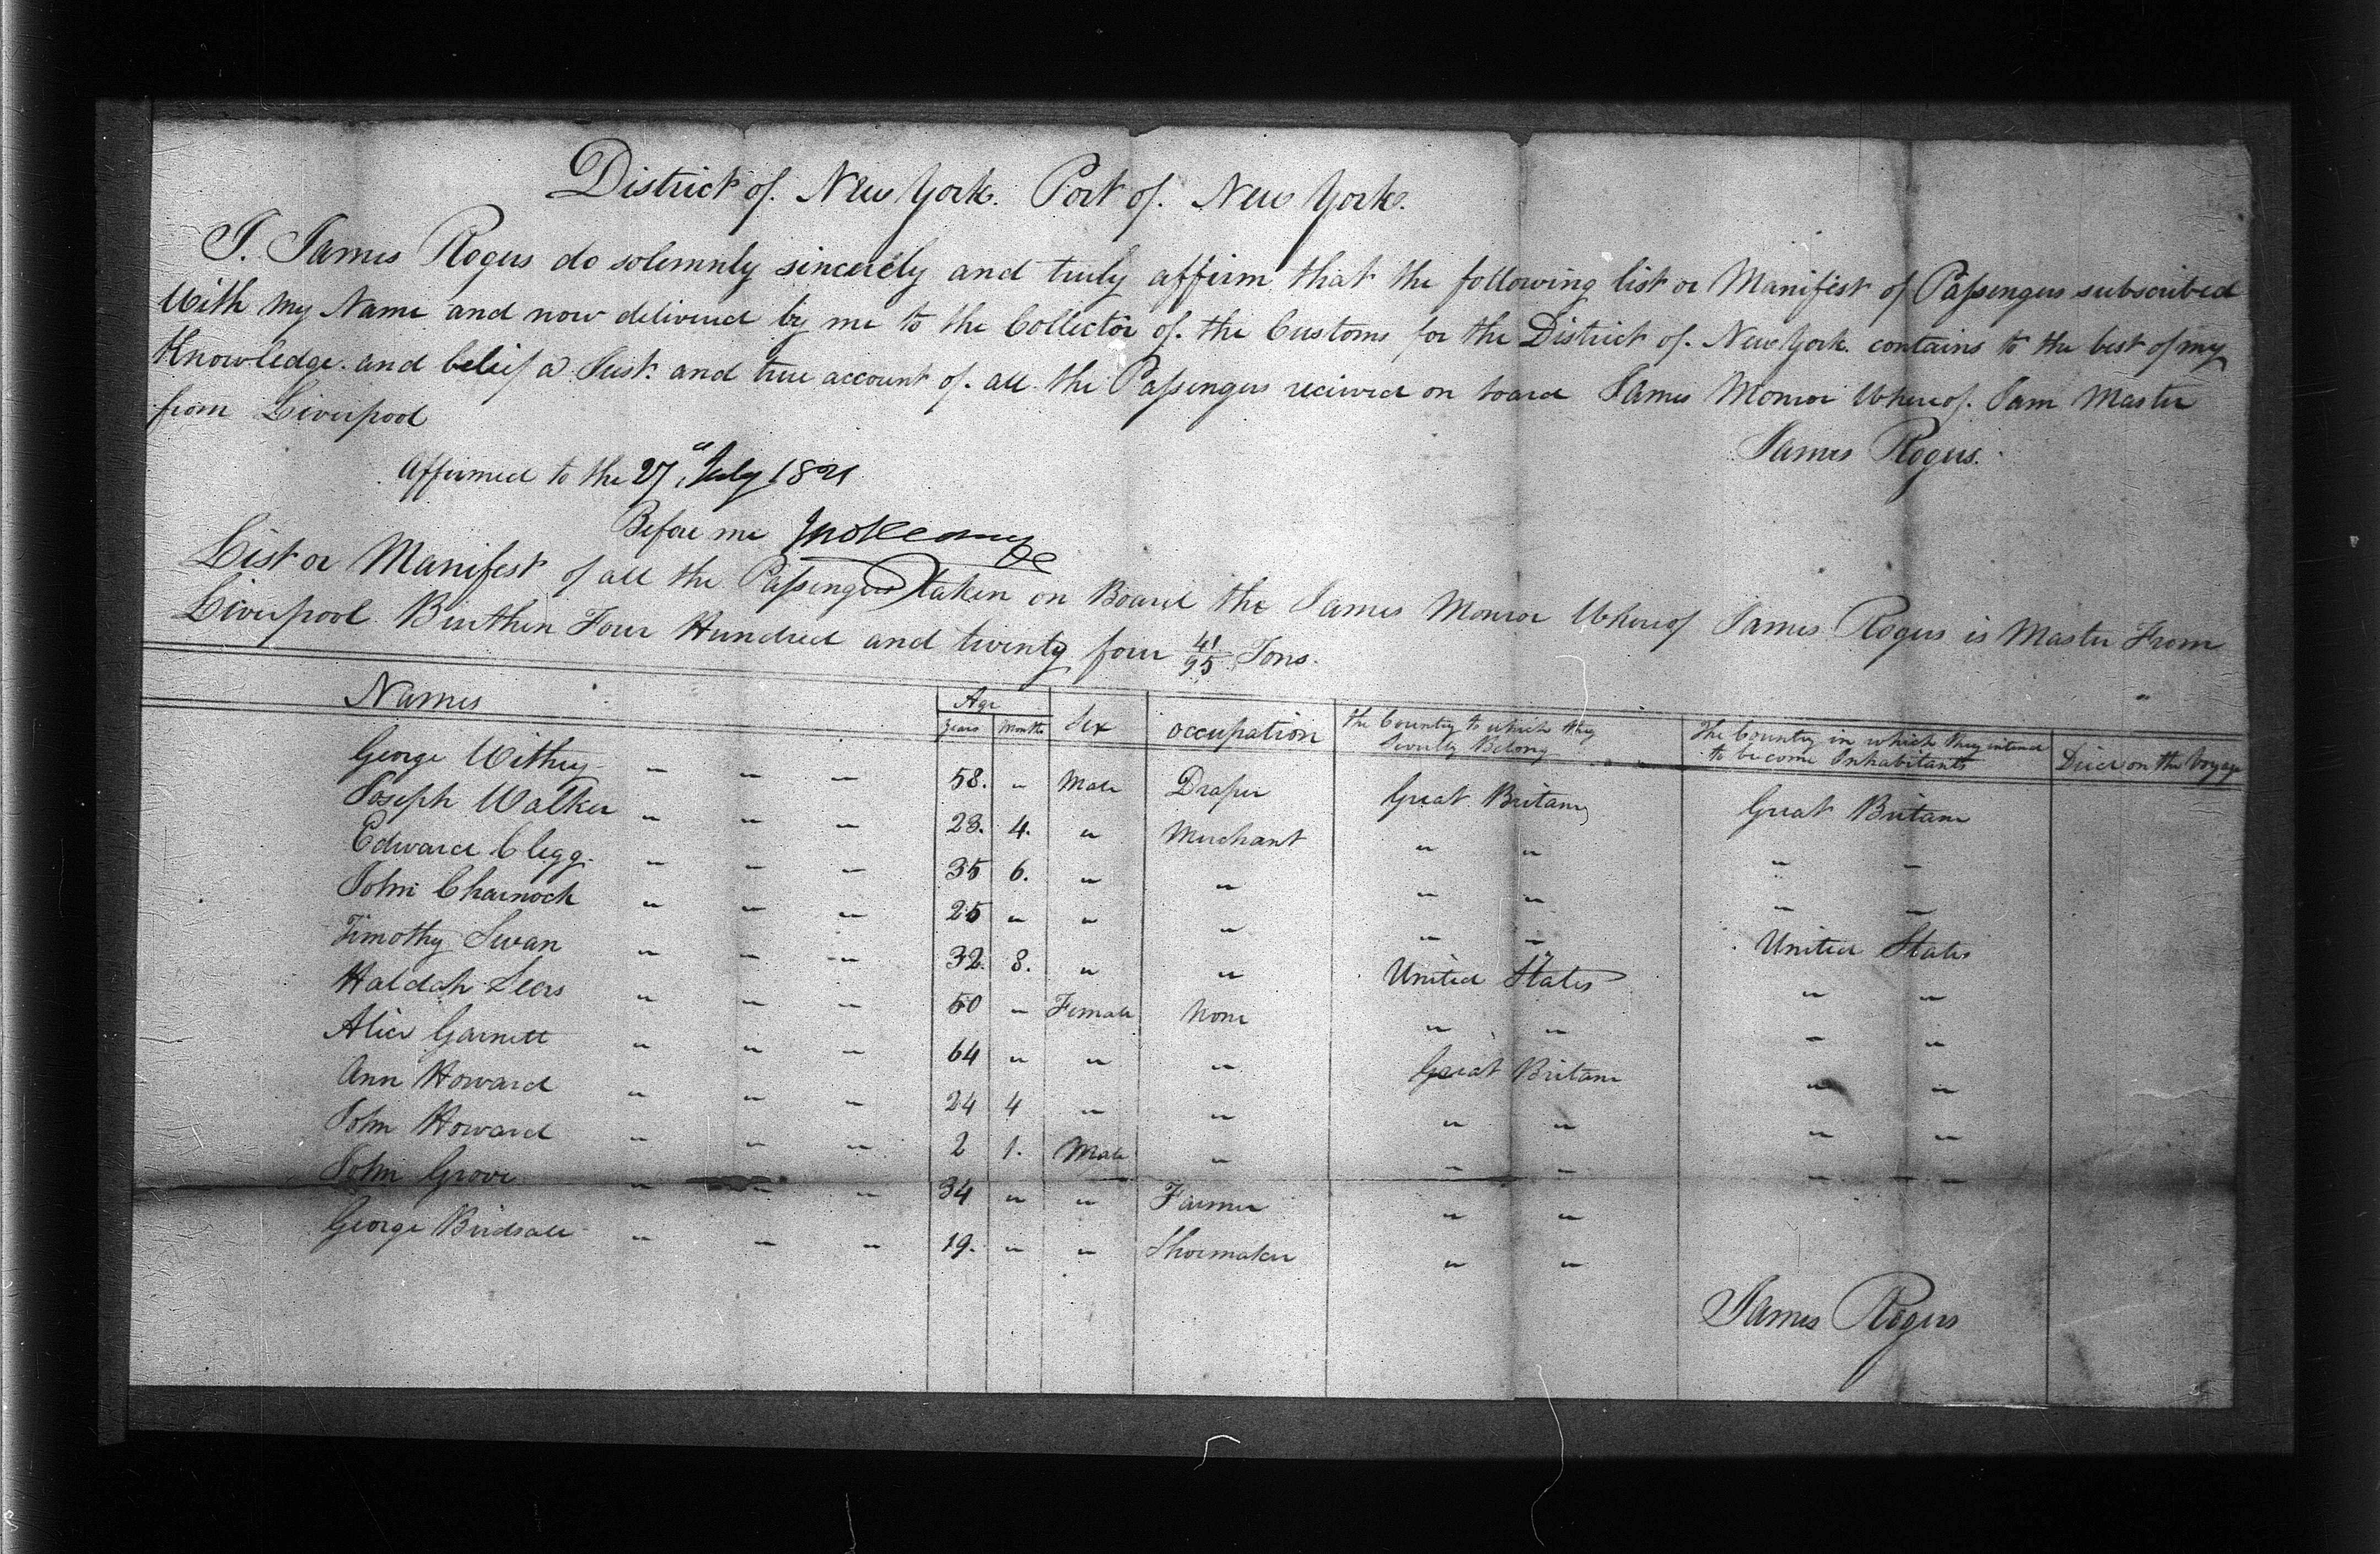 District of. New York. Port of. New York.
I. James Rogers do solemnly sincerely and truly affirm that the following list or Manifest of Passengers subscribed
With my Name and now delivered by me to the Collector of. the Customs for the District of. New York. contains to the best of my
Knowledge. and belief a Just. and true account of. all the Passengers received on board James Monroe Whereof. I am Master
from Liverpool
James Rogers.
Affirmed to the 27 July 1821
Before me
List or Manifest of all the Passengers taken on Board the James Monroe Whereof James Rogers is Master From
Liverpool Burthen Four Hundred and twenty four 41/95 Tons.
Names Age Years Months Sex occupation the Country to which they Severly Belong The Country in which they intend to become Inhabitants Died on the Voyage
George Withey - - - 58. " Male Draper Great Britain Great Britain
Joseph Walker " " " 28. 4. " Merchant " " " "
Edward Clegg. - - - 35 6. " " " " " "
John Charnock " " " 25 " " " " " United States
Timothy Swan " " " 32. 8. " " United States " "
Haldah Seers " " " 50 " Female None " " " "
Alice Garnett " " " 64 " " " Great Britain " "
Ann Howard " " " 24 4 " " " " " "
John Howard " " " 2 1. Male " " " " "
John Grove " " " 34 " " Farmer " "
George Birdsall " " " 19. " " Shoemaker " "
James Rogers